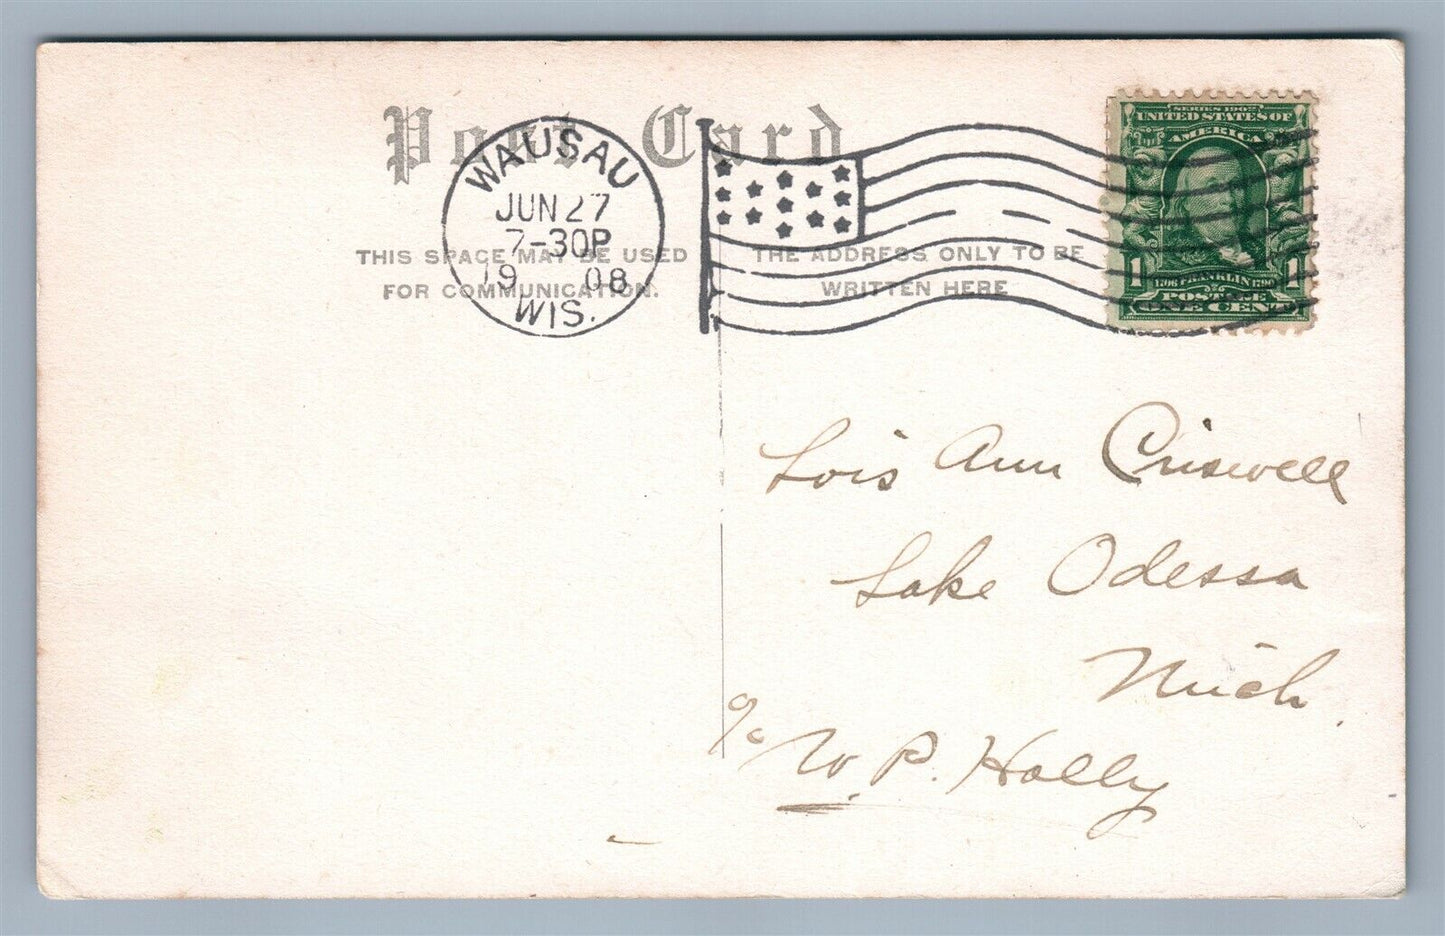 Post Card
WAUSAU
JUN 27
7-30P
1908
WIS.
THIS SPACE MAY BE USED
FOR COMMUNICATION.
THE ADDRESS ONLY TO BE
WRITTEN HERE
SERIES 1902
UNITED STATES OF
AMERICA
1 1
1706 FRANKLIN 1790
POSTAGE
ONE CENT
Lois Ann Criswell
Lake Odessa
Mich.
℅ W. P. Holly